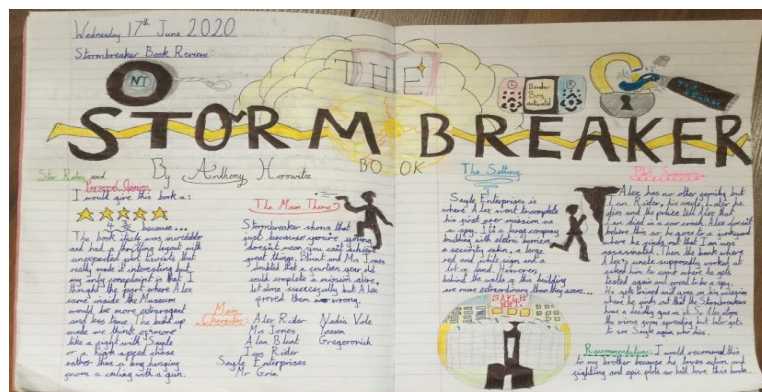 Wednesday 17th June 2020
Stormbreaker Book Review
NT
THE
STORMBREAKER
BOOK
By Anthony Horowitz
Star Rating and
Personal Opinion
I would give this book a:
4 because...
The book likely was incredible
and had a thrilling plot with
unexpected plot twists that
really made it interesting but
my only complaint is that I
thought the part where Alex
came inside the Museum
would be more extravagant
and less tame. The build up
made me think
like a fight with Sayle
or a high speed chase
rather than a boy hanging
from a ceiling with a gun.
The Main Theme
Stormbreaker shows that
just because you're young
doesn't mean you can't achieve
great things. Blunt and Mrs Jones
doubted that a fourteen year old
could complete a mission alive,
let alone successfully but Alex
proved them wrong.
Main
Characters:
Alex Rider
Mrs Jones
Alan Blunt
Ian Rider
Sayle Enterprises
Mr Grin
Nadia Vole
Yassen
Gregorovich
The Setting
Sayle Enterprises is
where Alex went to complete
his first ever mission as
a spy. It is a large company
building with eleven homes,
a security cabin, a large
red and white sign and a
lot of land. However,
behind the walls of this building
are more extraordinary than they seem...
SAYLE
ENT.
Plot Summary
Alex has no other family but
Ian Rider, his uncle. Later he
dies and the police tell Alex that
Ian died in a car crash. Alex doesn't
believe this so he goes to a junkyard
where he finds out that Ian was
assassinated. Then the bank where
Alex's uncle supposedly worked at
asked him to come where he gets
tested again and asked to be a spy.
He gets trained and goes on his mission
where he finds out that the Stormbreakers
have a deadly gas in it. So Alex stops
the virus from spreading but later gets
to see Sayle again who dies.
Recommendations: I would recommend this
to my brother because he loves action, and
fighting and epic plots so he'll love this book.